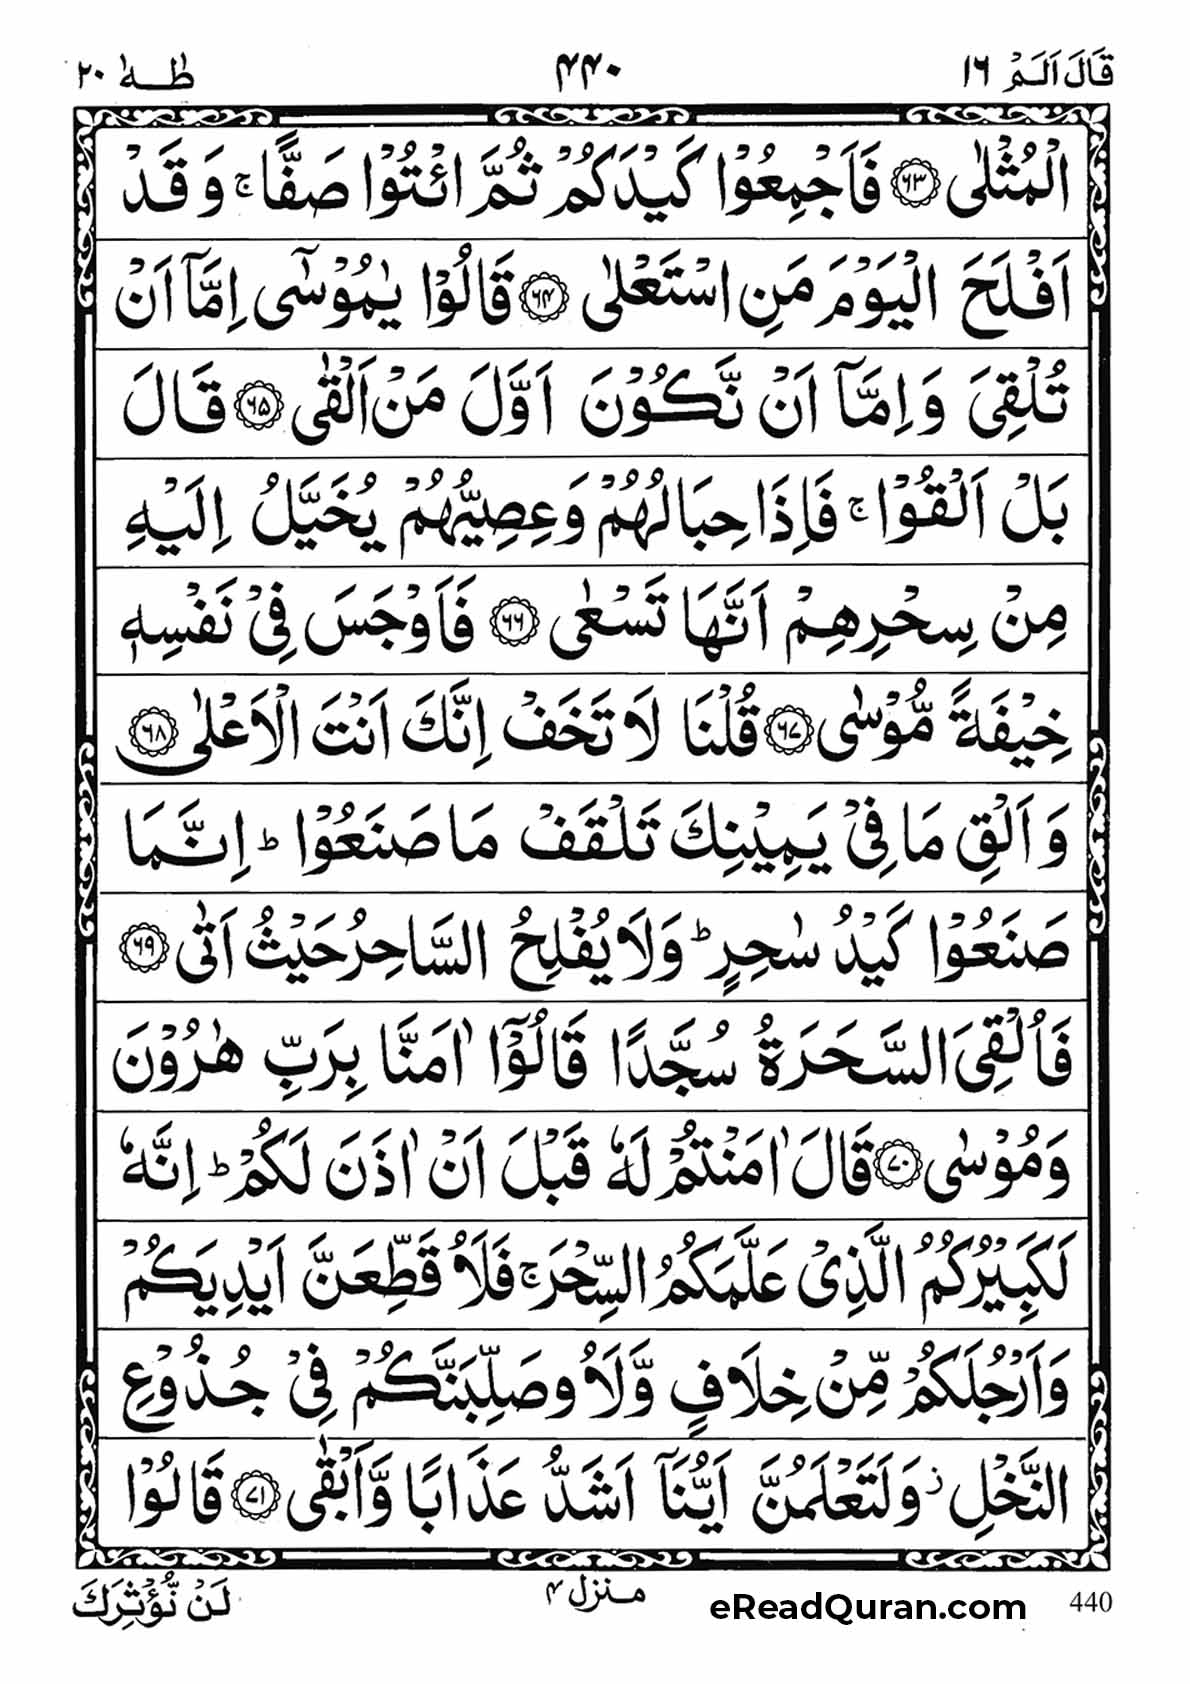 قَالَ اَلَمْ ١٦ ۴۴۰ طٰهٰ ٢٠
الْمُثْلٰى ﴿۶۳﴾ فَاَجْمِعُوْا كَيْدَكُمْ ثُمَّ ائْتُوْا صَفًّا ۚ وَ قَدْ
اَفْلَحَ الْيَوْمَ مَنِ اسْتَعْلٰى ﴿۶۴﴾ قَالُوْا يٰمُوْسٰۤى اِمَّاۤ اَنْ
تُلْقِىَ وَ اِمَّاۤ اَنْ نَّكُوْنَ اَوَّلَ مَنْ اَلْقٰى ﴿۶۵﴾ قَالَ
بَلْ اَلْقُوْا ۚ فَاِذَا حِبَالُهُمْ وَ عِصِيُّهُمْ يُخَيَّلُ اِلَيْهِ
مِنْ سِحْرِهِمْ اَنَّهَا تَسْعٰى ﴿۶۶﴾ فَاَوْجَسَ فِىْ نَفْسِهٖ
خِيْفَةً مُّوْسٰى ﴿۶۷﴾ قُلْنَا لَا تَخَفْ اِنَّكَ اَنْتَ الْاَعْلٰى ﴿۶۸﴾
وَ اَلْقِ مَا فِىْ يَمِيْنِكَ تَلْقَفْ مَا صَنَعُوْا ؕ اِنَّمَا
صَنَعُوْا كَيْدُ سٰحِرٍ ؕ وَلَا يُفْلِحُ السَّاحِرُ حَيْثُ اَتٰى ﴿۶۹﴾
فَاُلْقِىَ السَّحَرَةُ سُجَّدًا قَالُوْۤا اٰمَنَّا بِرَبِّ هٰرُوْنَ
وَمُوْسٰى ﴿۷۰﴾ قَالَ اٰمَنْتُمْ لَهٗ قَبْلَ اَنْ اٰذَنَ لَكُمْ ؕ اِنَّهٗ
لَكَبِيْرُكُمُ الَّذِىْ عَلَّمَكُمُ السِّحْرَ ۚ فَلَاُ قَطِّعَنَّ اَيْدِيَكُمْ
وَاَرْجُلَكُمْ مِّنْ خِلَافٍ وَّلَاُ وصَلِّبَنَّكُمْ فِىْ جُذُوْعِ
النَّخْلِ ز وَلَتَعْلَمُنَّ اَيُّنَاۤ اَشَدُّ عَذَابًا وَّاَبْقٰى ﴿۷۱﴾ قَالُوْا
لَنْ نُّؤْثِرَكَ
منزل ۴
eReadQuran.com 440